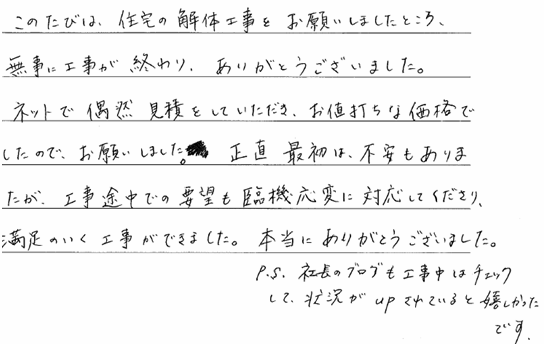 このたびは、住宅の解体工事を お願いしましたところ、
無事に工事が 終わり、ありがとうございました。
ネットで 偶然 見積をしていただき、お値打ちな価格で
したので、お願いしました。 正直 最初は、不安もありま
たが、工事途中での要望も臨機応変に 対応してくださり、
満足のいく工事ができました。本当にありがとうございました。
P.S. 社長のブログも工事中はチェック
して、状況が up されていると嬉しかった
です。